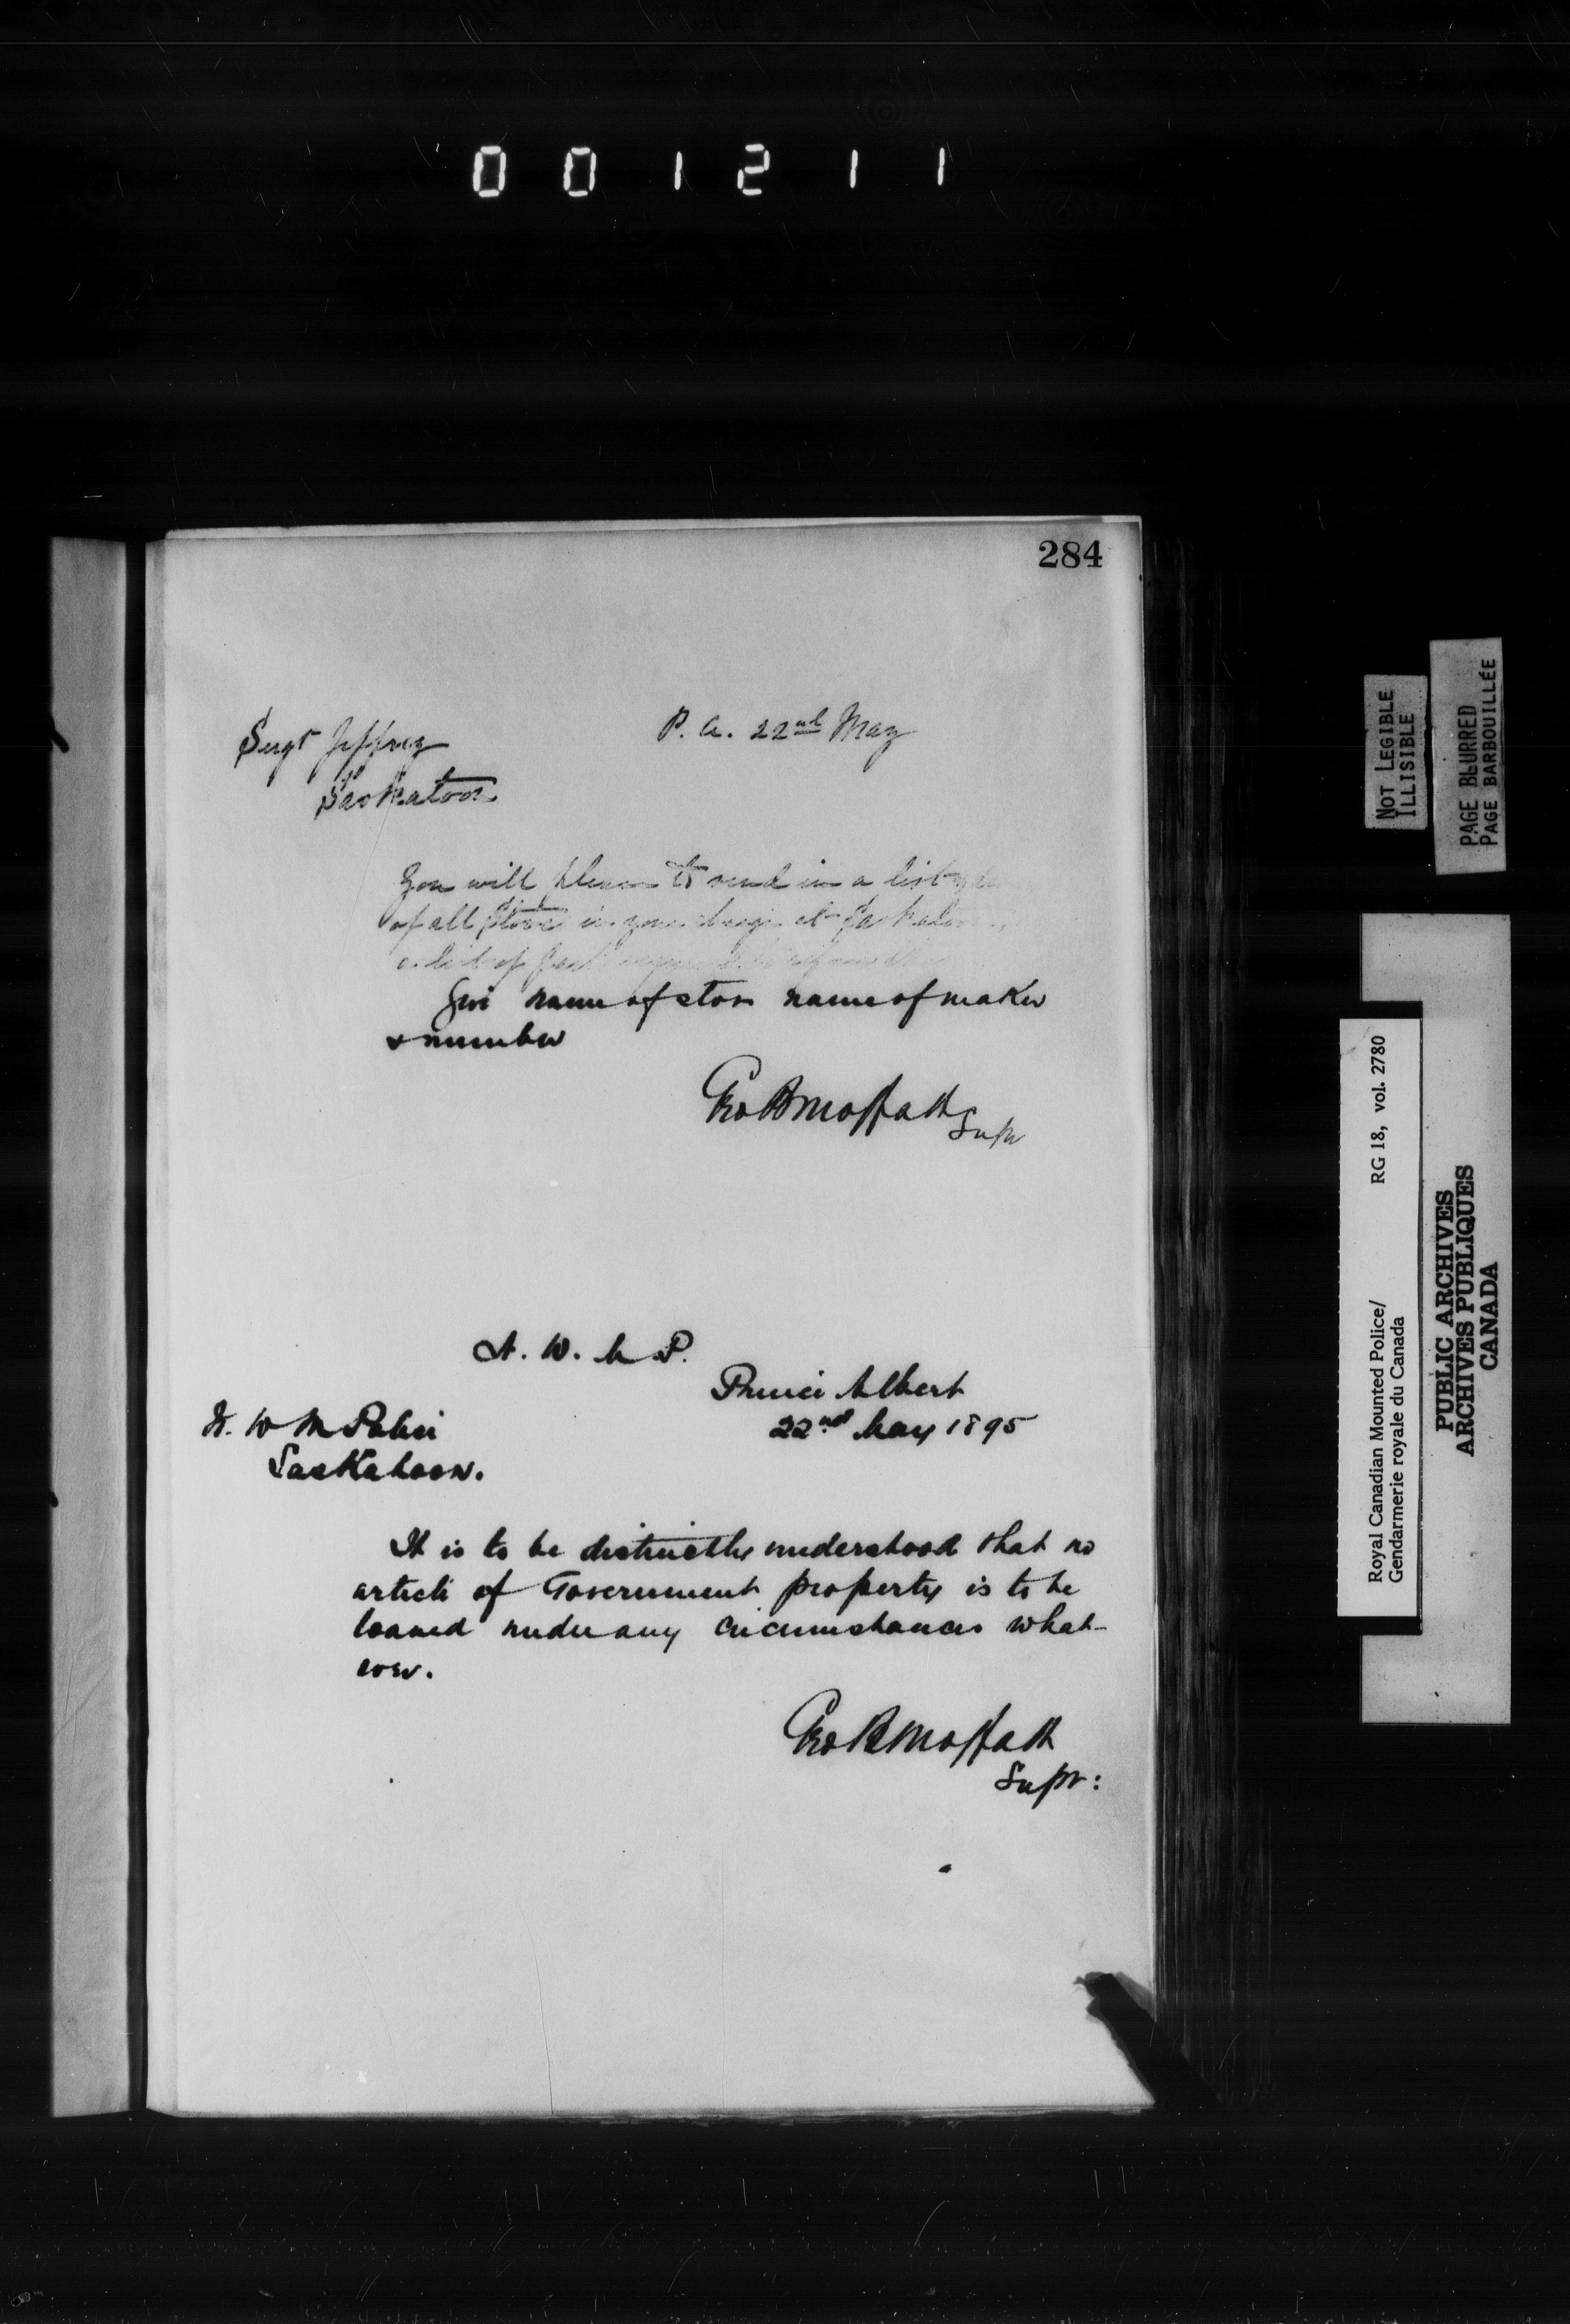 001211
284
Sergt Jeffrey
P. A. 22nd May
Saskatoon
You will please to send in a list
of all stoves in your charge at Saskatoon
a list of
Give name of stove name of maker
& number
Geo B Moffatt
Supt
N. W. M P.
Prince Albert
N. W M Police
22nd May 1895
Saskatoon.
It is to be distinctly understood that no
article of Government property is to be
loaned under any circumstances what-
ever.
Geo B Moffatt
Supt:
NOT LEGIBLE
ILLISIBLE
PAGE BLURRED
PAGE BARBOUILLÉE
Royal Canadian Mounted Police/
Gendarmerie royale du Canada
RG 18, vol. 2780
PUBLIC ARCHIVES
ARCHIVES PUBLIQUES
CANADA